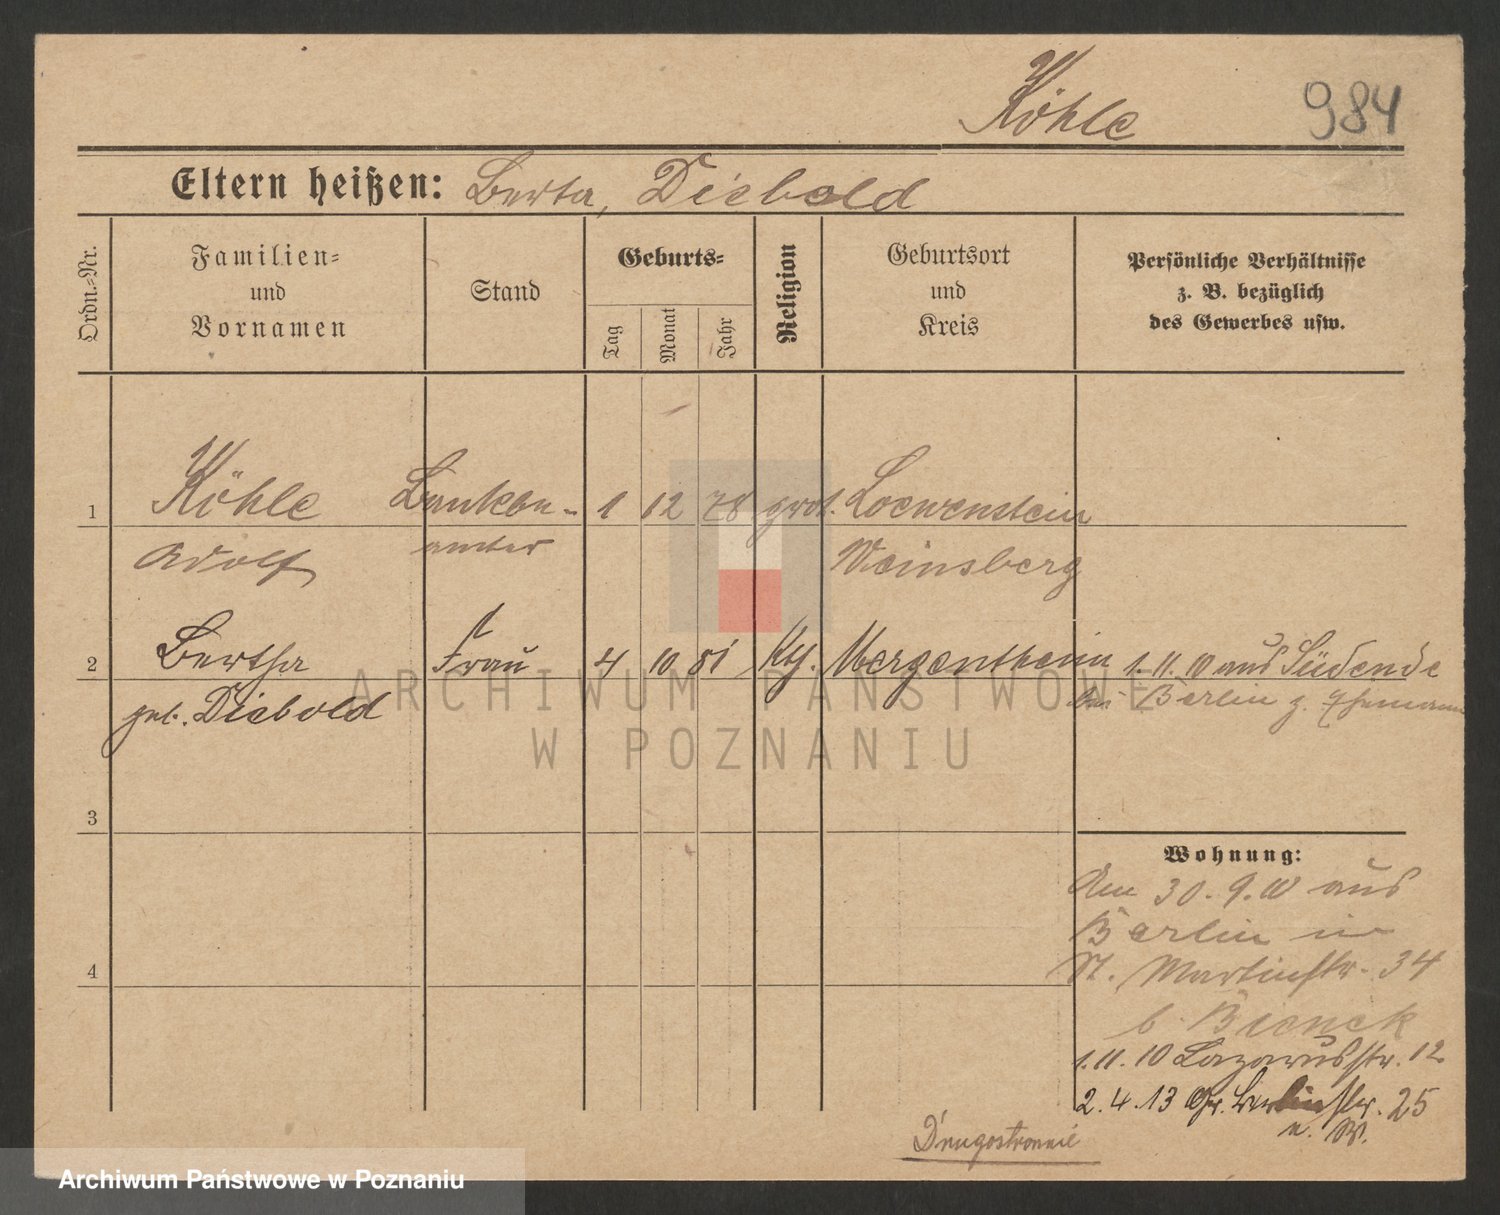 Köhle 984
Eltern heißen: Berta, Diebold
Ordn.-Nr.
Familien-
und
Vornamen
Stand
Geburts-
Tag
Monat
Jahr
Religion
Geburtsort
und
Kreis
Persönliche Verhältnisse
z. B. bezüglich
des Gewerbes usw.
1 Köhle Bankbe- 1 12 78 Loewenstein
Adolf amter Weinsberg
2 Bertha Frau 4 10 81 Kth. Mergentheim 1.11.10 aus Südende
geb. Diebold bei Berlin z. Ehemann
3
Wohnung:
Am 30.9.10 aus
Berlin in
St. Martinstr. 34
4
b.
1.11.10 Lazarusstr. 12
2.4.13 Gr. Berlinstr. 25
n. W.
Drugostronnie
ARCHIWUM PAŃSTWOWE
W POZNANIU
Archiwum Państwowe w Poznaniu